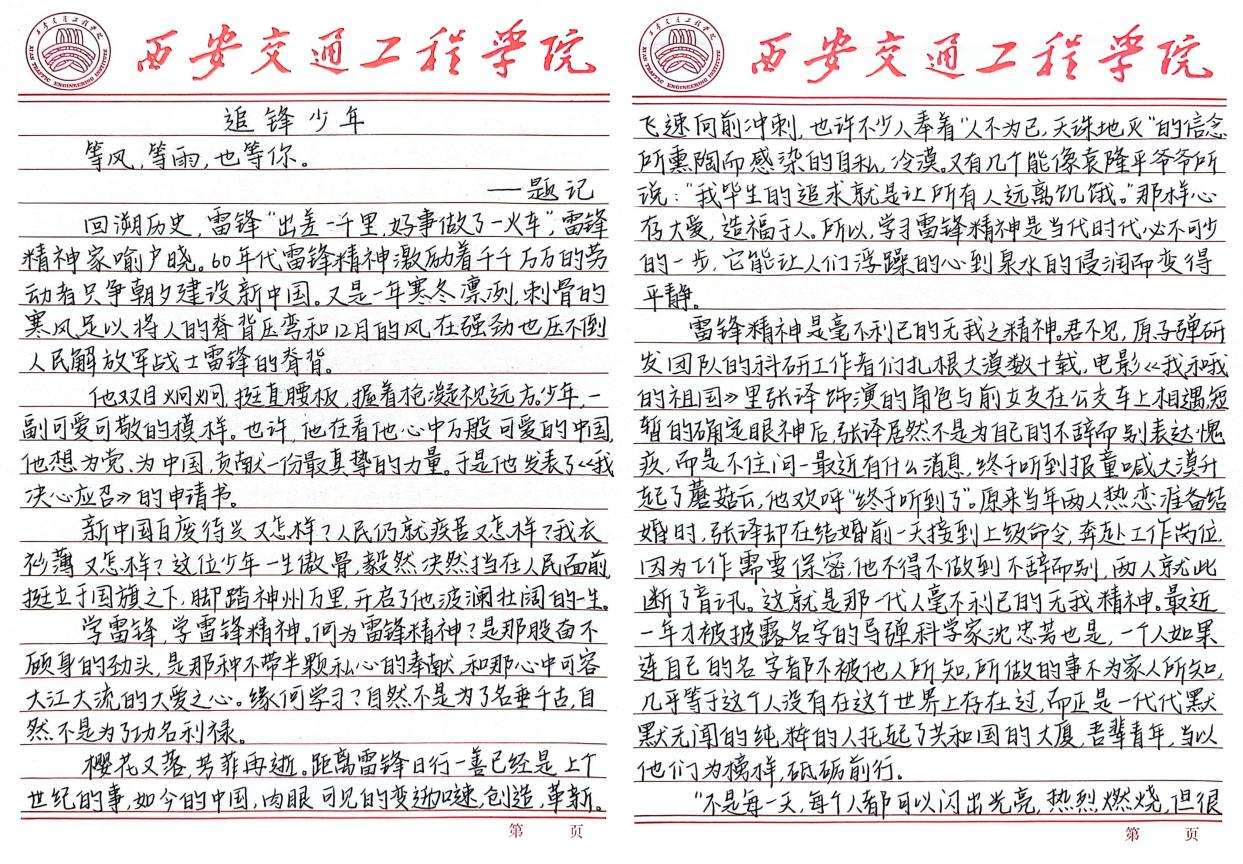 西安交通工程学院
XI'AN TRAFFIC ENGINEERING INSTITUTE
追锋少年
等风,等雨,也等你。
——题记
回溯历史,雷锋“出差一千里,好事做了一火车”,雷锋
精神家喻户晓。60年代雷锋精神激励着千千万万的劳
动者只争朝夕建设新中国。又是一年寒冬凛冽,刺骨的
寒风足以将人的脊背压弯和12月的风在强劲也压不倒
人民解放军战士雷锋的脊背。
他双目炯炯,挺直腰板,握着枪凝视远方。少年,一
副可爱可敬的模样。也许,他在看他心中万般可爱的中国,
他想为党、为中国,贡献一份最真挚的力量。于是他发表了《我
决心应召》的申请书。
新中国百废待兴又怎样?人民仍就疾苦又怎样?我衣
衫薄又怎样?这位少年一生傲骨,毅然决然挡在人民面前,
挺立于国旗之下,脚踏神州万里,开启了他波澜壮阔的一生。
学雷锋,学雷锋精神。何为雷锋精神?是那股奋不
顾身的劲头,是那种不带半颗私心的奉献,和那心中可容
大江大流的大爱之心。缘何学习?自然不是为了名垂千古,自
然不是为了功名利禄。
樱花又落,芳菲再逝。距离雷锋日行一善已经是上个
世纪的事,如今的中国,肉眼可见的变迅加速,创造,革新。
第 页
西安交通工程学院
XI'AN TRAFFIC ENGINEERING INSTITUTE
飞速向前冲刺,也许不少人奉着“人不为己,天诛地灭”的信念
所熏陶而感染的自私,冷漠。又有几个能像袁隆平爷爷所
说:“我毕生的追求就是让所有人远离饥饿。”那样心
存大爱,造福于人。所以,学习雷锋精神是当代时代必不可少
的一步,它能让人们浮躁的心到泉水的侵润而变得
平静。
雷锋精神是毫不利己的无我之精神。君不见,原子弹研
发团队的科研工作者们扎根大漠数十载,电影《我和我
的祖国》里张译饰演的角色与前女友在公交车上相遇,短
暂的确定眼神后,张译居然不是为自己的不辞而别表达愧
疚,而是不住问一最近有什么消息,终于听到报童喊大漠升
起了蘑菇云,他欢呼“终于听到了”。原来当年两人热恋准备结
婚时,张译却在结婚前一天接到上级命令,奔赴工作岗位,
因为工作需要保密,他不得不做到不辞而别,两人就此
断了音讯。这就是那一代人毫不利己的无我精神。最近
一年才被披露名字的导弹科学家沈忠芳也是,一个人如果
连自己的名字都不被他人所知,所做的事不为家人所知,
几乎等于这个人没有在这个世界上存在过,而正是一代代默
默无闻的纯粹的人托起了共和国的大厦,吾辈青年,当以
他们为榜样,砥砺前行。
“不是每一天,每个人都可以闪出光亮,热烈燃烧,但很
第 页